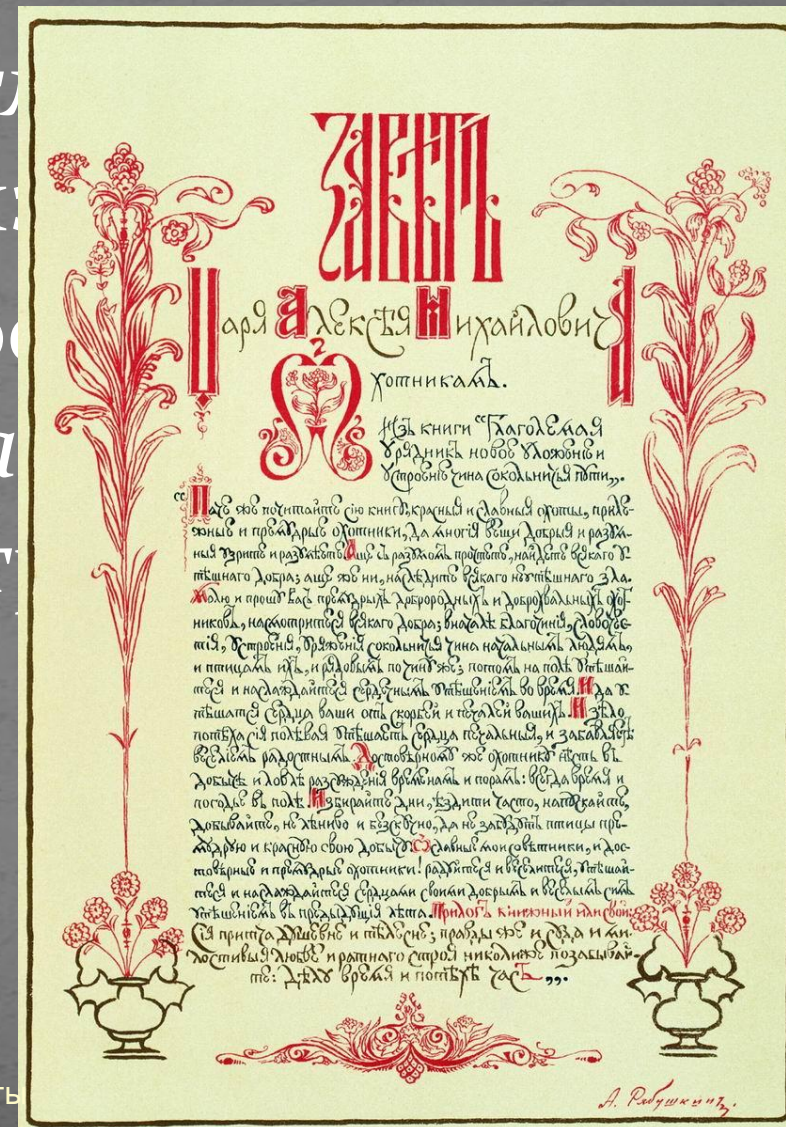 Царя Алексѣя Михайловича
Охотникамъ.
Изъ книги “Глаголемая
Урядникъ новое уложение и
устроение чина сокольничья пути„.
“Паче же почитайте сию книгу, красныя и славныя охоты, приле-
жные и премудрые охотники, да многія вещи добрыя и разум-
ныя узрите и разумѣете. Аще съ разумомъ прочтете, найдете всякаго у-
тѣшнаго добра; аще же ни, наслѣдите всякаго неутѣшнаго зла.
Молю и прошу васъ премудрыхъ доброродныхъ и доброхвальныхъ охот-
никовъ, насмотритеся всякаго добра; вначалѣ благочинія, славочес-
тія, устроенія, уряженія сокольничья чина начальнымъ людямъ,
и птицамъ ихъ, и рядовымъ по чину же; потомъ на полѣ утѣшай-
теся и наслаждайтеся сердечнымъ утѣшеніемъ во время. И да у-
тѣшатся сердца ваши отъ скорбей и печалей вашихъ. И зѣло
потѣха сія полевая утѣшаетъ сердца печальныя, и забавляетъ
веселіемъ радостнымъ. Достовѣрному же охотнику нѣсть въ
добычѣ и ловлѣ разсужденія временамъ и порамъ: всегда время и
погодье въ полѣ. Избирайте дни, ѣздите часто, напускайте,
добывайте, не лѣниво и безскучно, да не забудутъ птицы пре-
мудрую и красную свою добычу. О славные мои совѣтники, и дос-
товѣрные и премудрые охотники! радуйтеся и веселитеся, утѣшай-
теся и наслаждайтеся сердцами своими добрымъ и веселымъ симъ
утѣшеніемъ въ предыдущія лѣта. Прилогъ книжный или свой:
Сія притча душевне и тѣлесне; правды же и суда и ми-
лостивыя любве и ратнаго строя николиже позабывай-
те: дѣлу время и потѣхѣ часъ„.
А. Рябушкинъ.